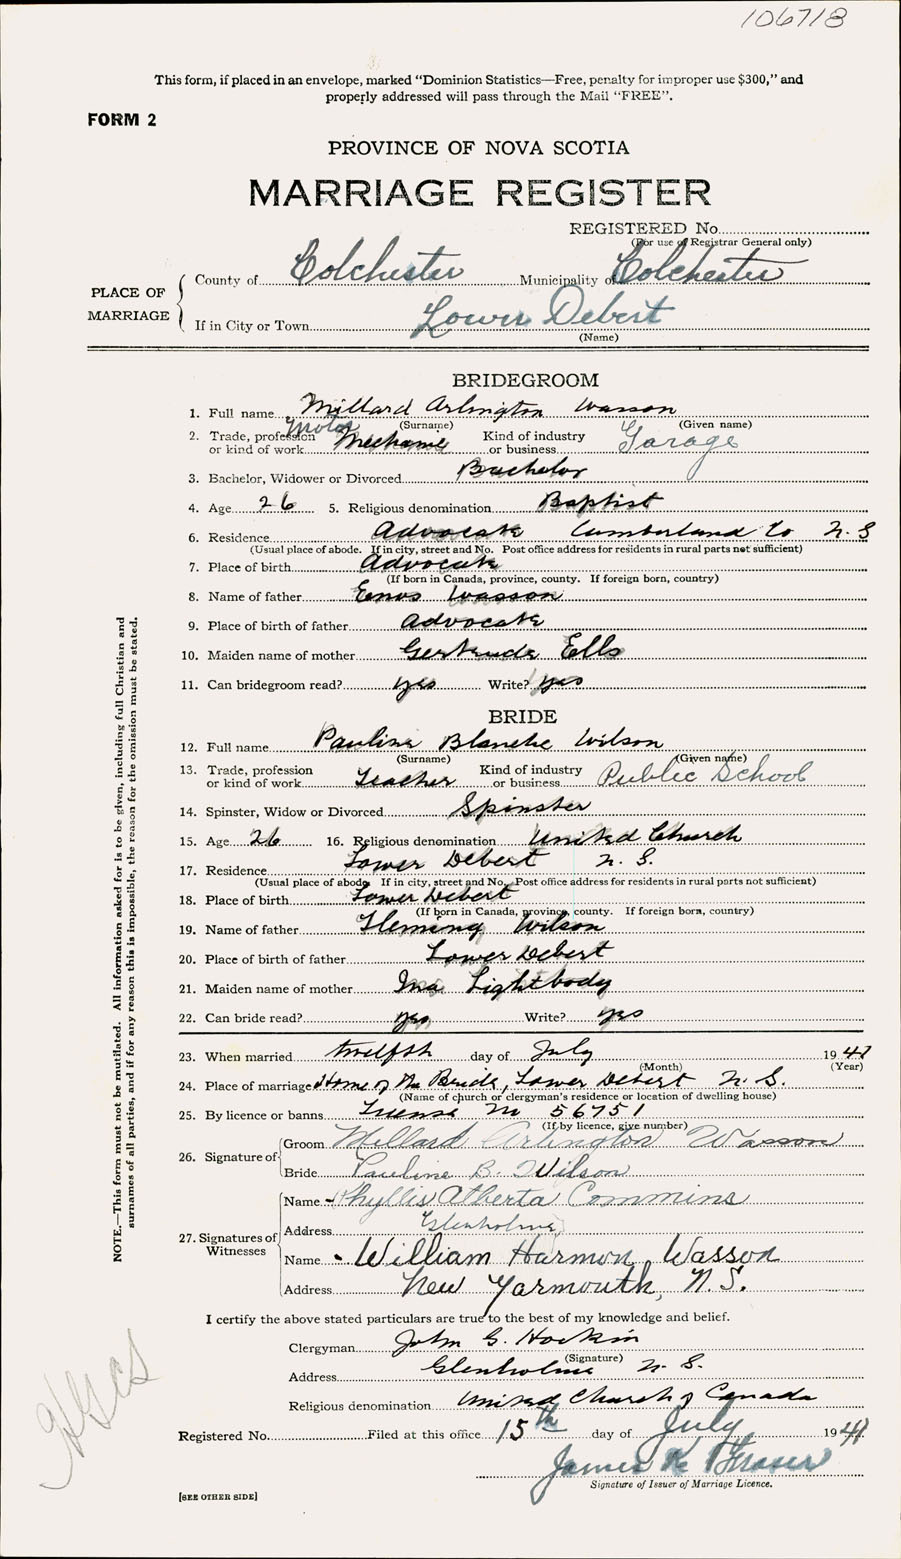 106718
This form, if placed in an envelope, marked “Dominion Statistics—Free, penalty for improper use $300,” and
properly addressed will pass through the Mail “FREE”.
FORM 2
PROVINCE OF NOVA SCOTIA
MARRIAGE REGISTER
REGISTERED No.
(For use of Registrar General only)
PLACE OF MARRIAGE
County of Colchester Municipality of Colchester
If in City or Town Lower Debert
(Name)
BRIDEGROOM
1. Full name Millard Arlington Wasson
(Surname) (Given name)
2. Trade, profession or kind of work Motor Mechanic Kind of industry or business Garage
3. Bachelor, Widower or Divorced Bachelor
4. Age 26 5. Religious denomination Baptist
6. Residence Advocate Cumberland Co N.S
(Usual place of abode. If in city, street and No. Post office address for residents in rural parts not sufficient)
7. Place of birth Advocate
(If born in Canada, province, county. If foreign born, country)
8. Name of father Enos Wasson
9. Place of birth of father Advocate
10. Maiden name of mother Gertrude Ells
11. Can bridegroom read? yes Write? yes
BRIDE
12. Full name Pauline Blanche Wilson
(Surname) (Given name)
13. Trade, profession or kind of work Teacher Kind of industry or business Public School
14. Spinster, Widow or Divorced Spinster
15. Age 26 16. Religious denomination United Church
17. Residence Lower Debert N.S.
(Usual place of abode. If in city, street and No. Post office address for residents in rural parts not sufficient)
18. Place of birth Lower Debert
(If born in Canada, province, county. If foreign born, country)
19. Name of father Fleming Wilson
20. Place of birth of father Lower Debert
21. Maiden name of mother Ina Lightbody
22. Can bride read? yes Write? yes
23. When married twelfth day of July 1941
(Month) (Year)
24. Place of marriage Home of the Bride, Lower Debert N.S.
(Name of church or clergyman's residence or location of dwelling house)
25. By licence or banns License No 56751
(If by licence, give number)
26. Signature of Groom Millard Arlington Wasson
Bride Pauline B. Wilson
27. Signatures of Witnesses
Name Phyllis Alberta Commins
Address Glenholme
Name William Harmon Wasson
Address New Yarmouth, N.S.
I certify the above stated particulars are true to the best of my knowledge and belief.
Clergyman John G. Hockin
(Signature)
Address Glenholme N.S.
Religious denomination United Church of Canada
Registered No. Filed at this office 15th day of July 1941
James K Fraser
Signature of Issuer of Marriage Licence.
[SEE OTHER SIDE]
NOTE.—This form must not be mutilated. All information asked for is to be given, including full Christian and
surnames of all parties, and if for any reason this is impossible, the reason for the omission must be stated.